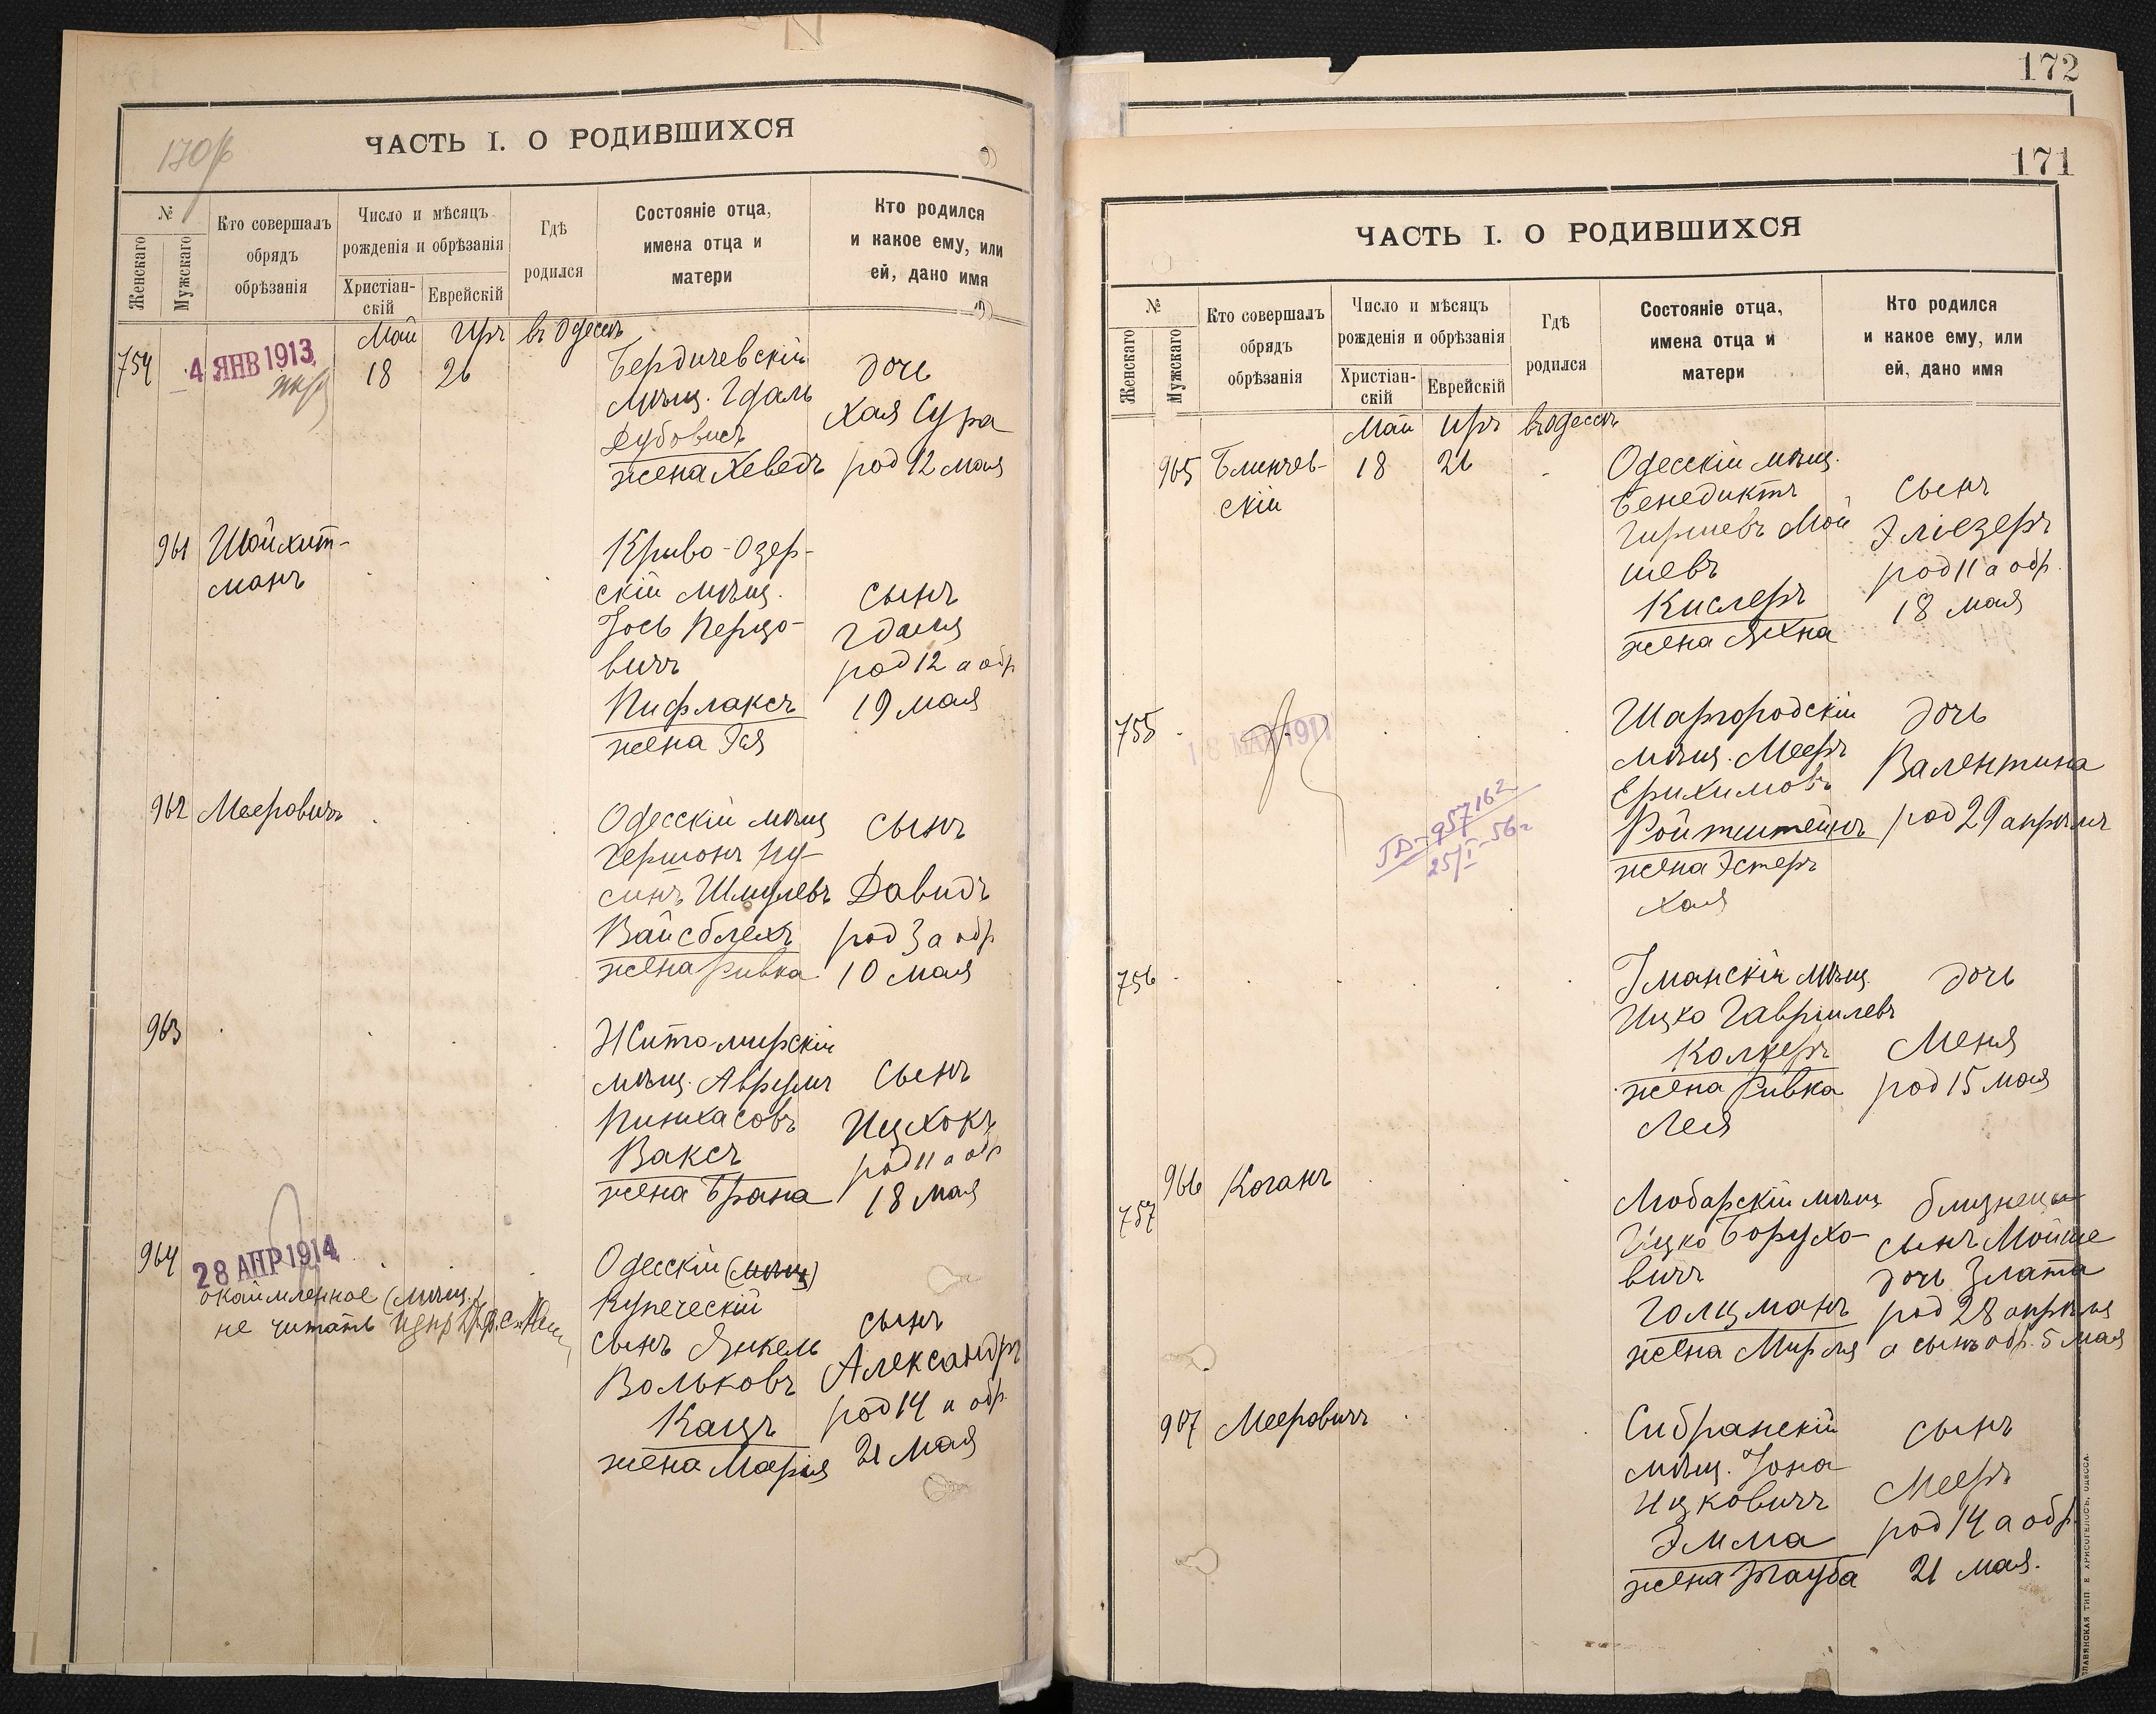 170 об
ЧАСТЬ I. О РОДИВШИХСЯ
№
Женскаго
Мужскаго
Кто совершалъ
обрядъ
обрѣзанія
Число и мѣсяцъ
рожденія и обрѣзанія
Христіан-
скій
Еврейскій
Гдѣ
родился
Состояніе отца,
имена отца и
матери
Кто родился
и какое ему, или
ей, дано имя
Май Иръ въ Одессѣ
754
4 ЯНВ 1913
18 26
Бердичевскій
мѣщ. Гдаль
Дубовисъ
жена Хеведъ
дочь
Хая Сура
род 12 мая
961 Шойхит-
манъ
Криво-Озер-
скій мѣщ.
Іось Перцо-
вичъ
Пифлаксъ
жена Эня
сынъ
Гдаля
род 12 а обр
19 мая
962 Мееровичъ
Одесскій мѣщ
Гершонъ Ну-
синъ Шмулевъ
Вайсблехъ
жена Ривка
сынъ
Давидъ
род 3 а обр
10 мая
963
Житомирскій
мѣщ. Аврумъ
Пинхасовъ
Ваксъ
жена Брана
сынъ
Ицхокъ
род 11 а обр
18 мая
964
28 АПР 1914
окаймленное (мѣщ.)
не читать
Одесскій (мѣщ)
Купеческій
сынъ Янкель
Вольковъ
Кацъ
жена Марія
сынъ
Александръ
род 14 а обр.
21 мая
172
171
ЧАСТЬ I. О РОДИВШИХСЯ
№
Женскаго
Мужскаго
Кто совершалъ
обрядъ
обрѣзанія
Число и мѣсяцъ
рожденія и обрѣзанія
Христіан-
скій
Еврейскій
Гдѣ
родился
Состояніе отца,
имена отца и
матери
Кто родился
и какое ему, или
ей, дано имя
Май Иръ въ Одессѣ
965 Блинчев-
скій
18 26
Одесскій мѣщ.
Бенедиктъ
Гиршевъ Мой
шевъ
Кислеръ
жена Яхна
сынъ
Эліезеръ
род 11 а обр.
18 мая
755
18 МАЙ 1911
957162
25/I-56г
Шаргородскій
мѣщ. Мееръ
Ерихимовъ
Ройтштейнъ
жена Эстеръ
Хая
дочь
Валентина
род 29 апрѣля
756
Уманскій мѣщ.
Ицко Гавриилевъ
Колкеръ
жена Ривка
Лея
дочь
Меня
род 15 мая
966 Коганъ
757
Любарскій мѣщ
Ицко Борухо-
вичъ
Голцманъ
жена Мирля
близнецы
сынъ Мойше
дочь Злата
род 28 апрѣля
а сынъ обр. 5 мая
967 Мееровичъ
Сибранскій
мѣщ. Іона
Ицковичъ
Эмма
жена Тауба
сынъ
Мееръ
род 14 а обр.
21 мая.
СЛАВЯНСКАЯ ТИП. Е. ХРИСОГЕЛОСЪ, ОДЕССА.